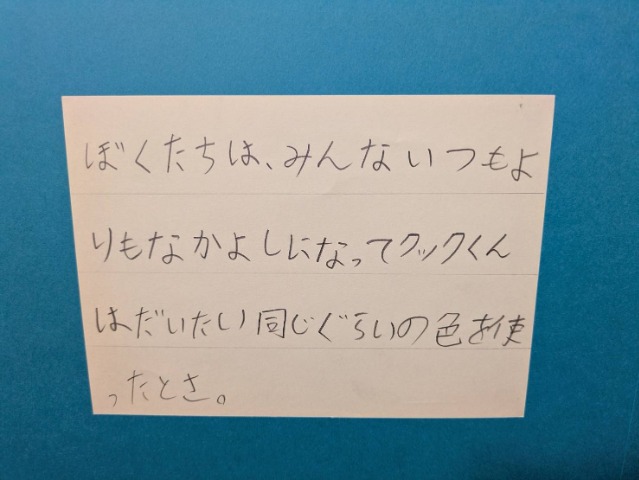 ぼくたちは、みんないつもよ
りもなかよしになってクックくん
はだいたい同じぐらいの色を使
ったとさ。